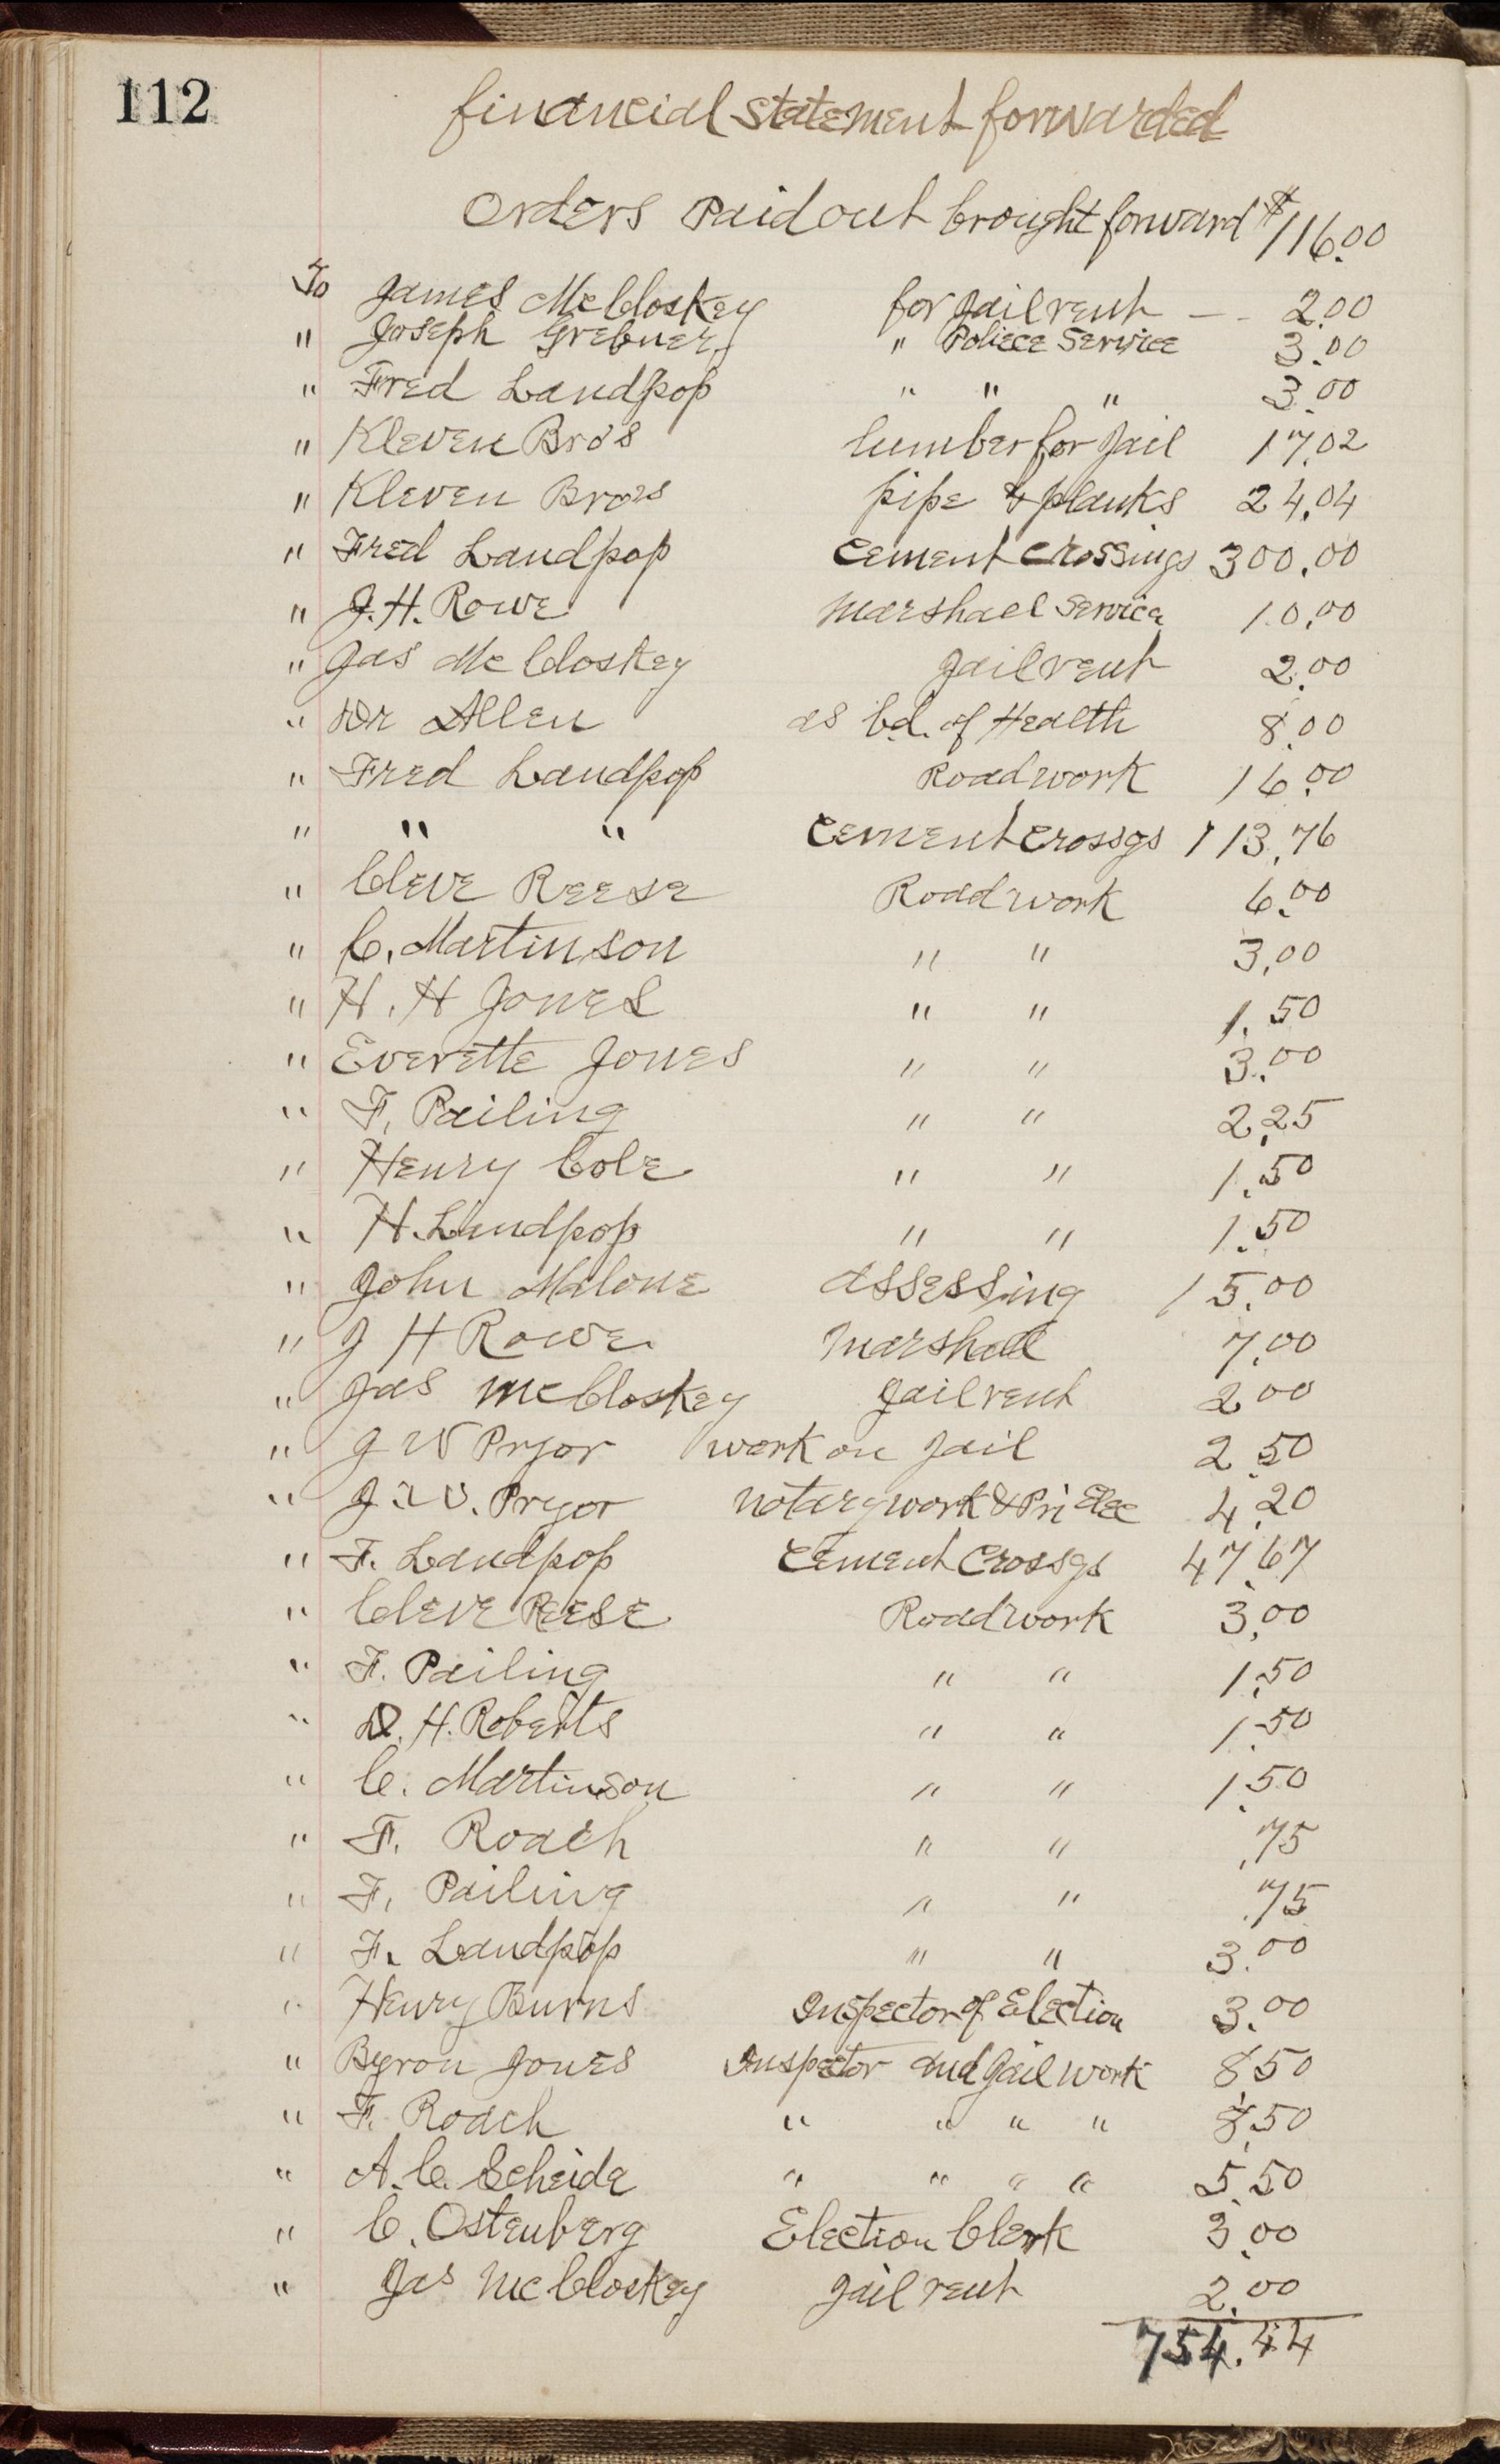 112
financial statement forwarded
Orders Paid out brought forward $116.00
To James McCloskey for Jail rent — - 2.00
" Joseph Grebner " Poliece Service 3.00
" Fred Landpop " " " 3.00
" Kleven Bro's lumber for Jail 17.02
" Kleven Bros pipe & planks 24.04
" Fred Landpop Cement Crossings 300.00
" J.H. Rowe Marshael Service 10.00
" Jas McCloskey Jail rent 2.00
" Dr Allen as bd. of Health 8.00
" Fred Landpop Road work 16.00
" " " Cement Crossgs 113.76
" Cleve Reese Road work 6.00
" C. Martinson " " 3.00
" H. H Jones " " 1.50
" Everette Jones " " 3.00
" F. Pailing " " 2.25
" Henry Cole " " 1.50
" H. Landpop " " 1.50
" John Malone Assessing 15.00
" J H Rowe Marshall 7.00
" Jas McCloskey Jail rent 2.00
" J W Pryor work on Jail 2.50
" J. W. Pryor notary work & Pri Elec 4.20
" F. Landpop Cement Crossgs 47.67
" Cleve Reese Road work 3.00
" F. Pailing " " 1.50
" D. H. Roberts " " 1.50
" C. Martinson " " 1.50
" F. Roach " " .75
" F. Pailing " " .75
" F. Landpop " " 3.00
" Henry Burns Inspector of Election 3.00
" Byron Jones Inspector and Jail work 8.50
" F. Roach " " " " 8.50
" A. C. Scheide " " " " 5.50
" C. Ostenberg Election Clerk 3.00
" Jas McCloskey Jail rent 2.00
754.44